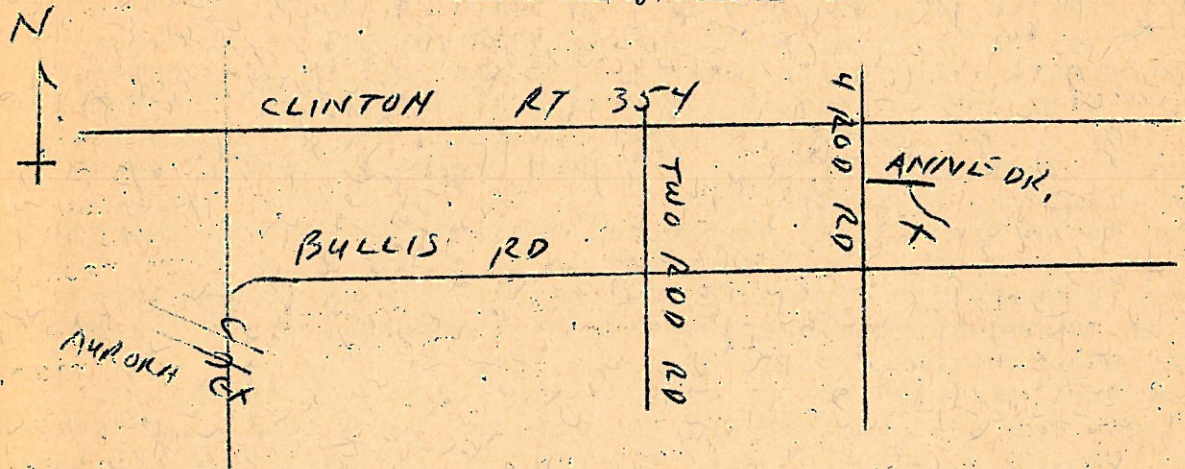 N
CLINTON RT 354
4 ROD RD
ANNE DR.
X
TWO ROD RD
BULLIS RD
AURORA